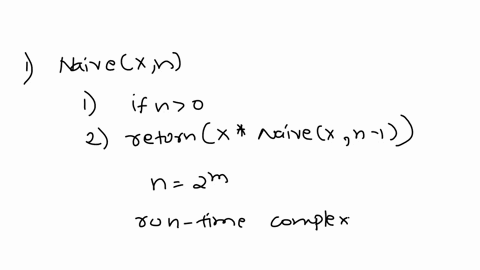 1) Naive(x,n)
1) if n>0
2) return(x* Naive(x,n-1))
n=2^m
run-time complex